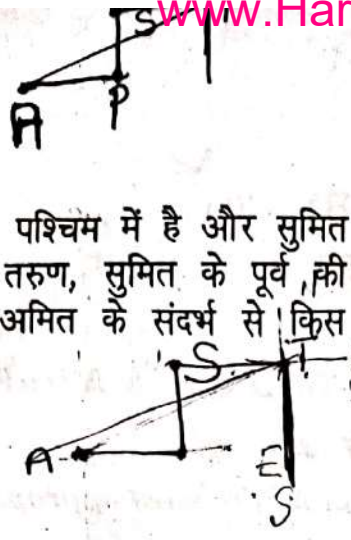 www.Har
S
P
A
पश्चिम में है और सुमित
तरुण, सुमित के पूर्व की
अमित के संदर्भ से किस
S T
A E
S